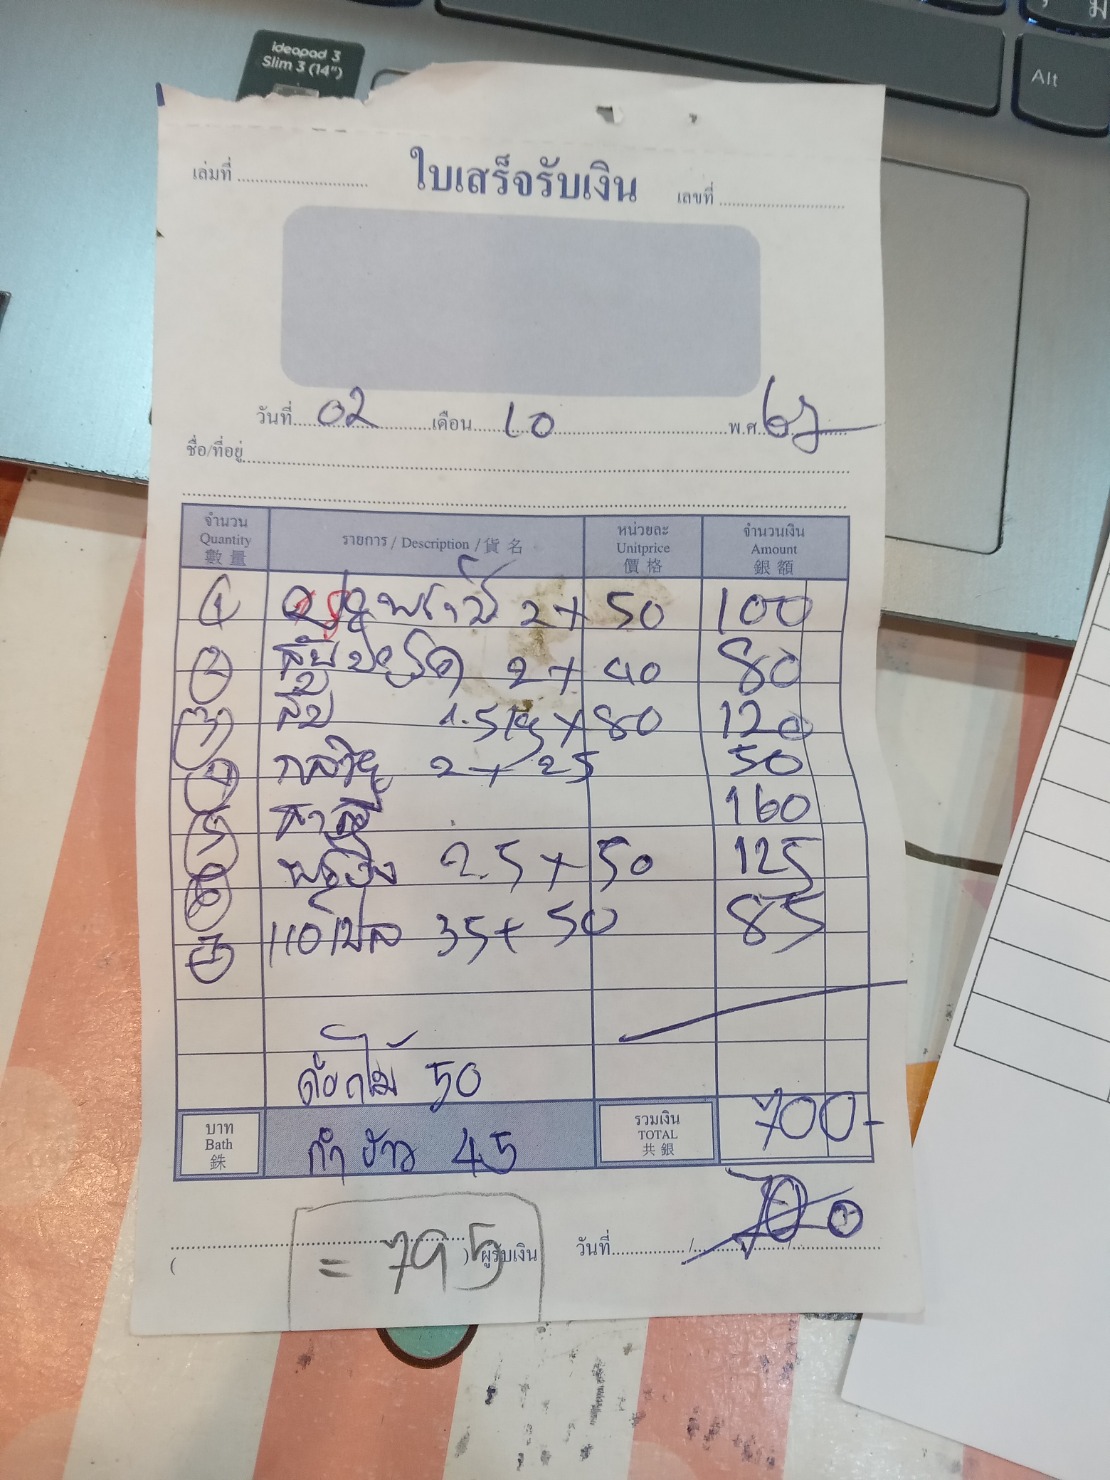 ideapad 3
Slim 3 (14")
Alt
เล่มที่ ใบเสร็จรับเงิน เลขที่
วันที่ 02 เดือน 10 พ.ศ. 67
ชื่อ/ที่อยู่
จำนวน Quantity 數量 รายการ / Description / 貨名 หน่วยละ Unitprice 價格 จำนวนเงิน Amount 銀額
1 2 x 50 100
2 2 x 40 80
3 1.5 kg x 80 120
4 กล้วย 2 x 25 50
5 สาลี่ 160
6 ฝรั่ง 2.5 x 50 125
7 แอปเปิล 35 + 50 85
ดอกไม้ 50
บาท Bath 銖 45 รวมเงิน TOTAL 共銀 700-
700
( ) ผู้รับเงิน วันที่ / /
= 795